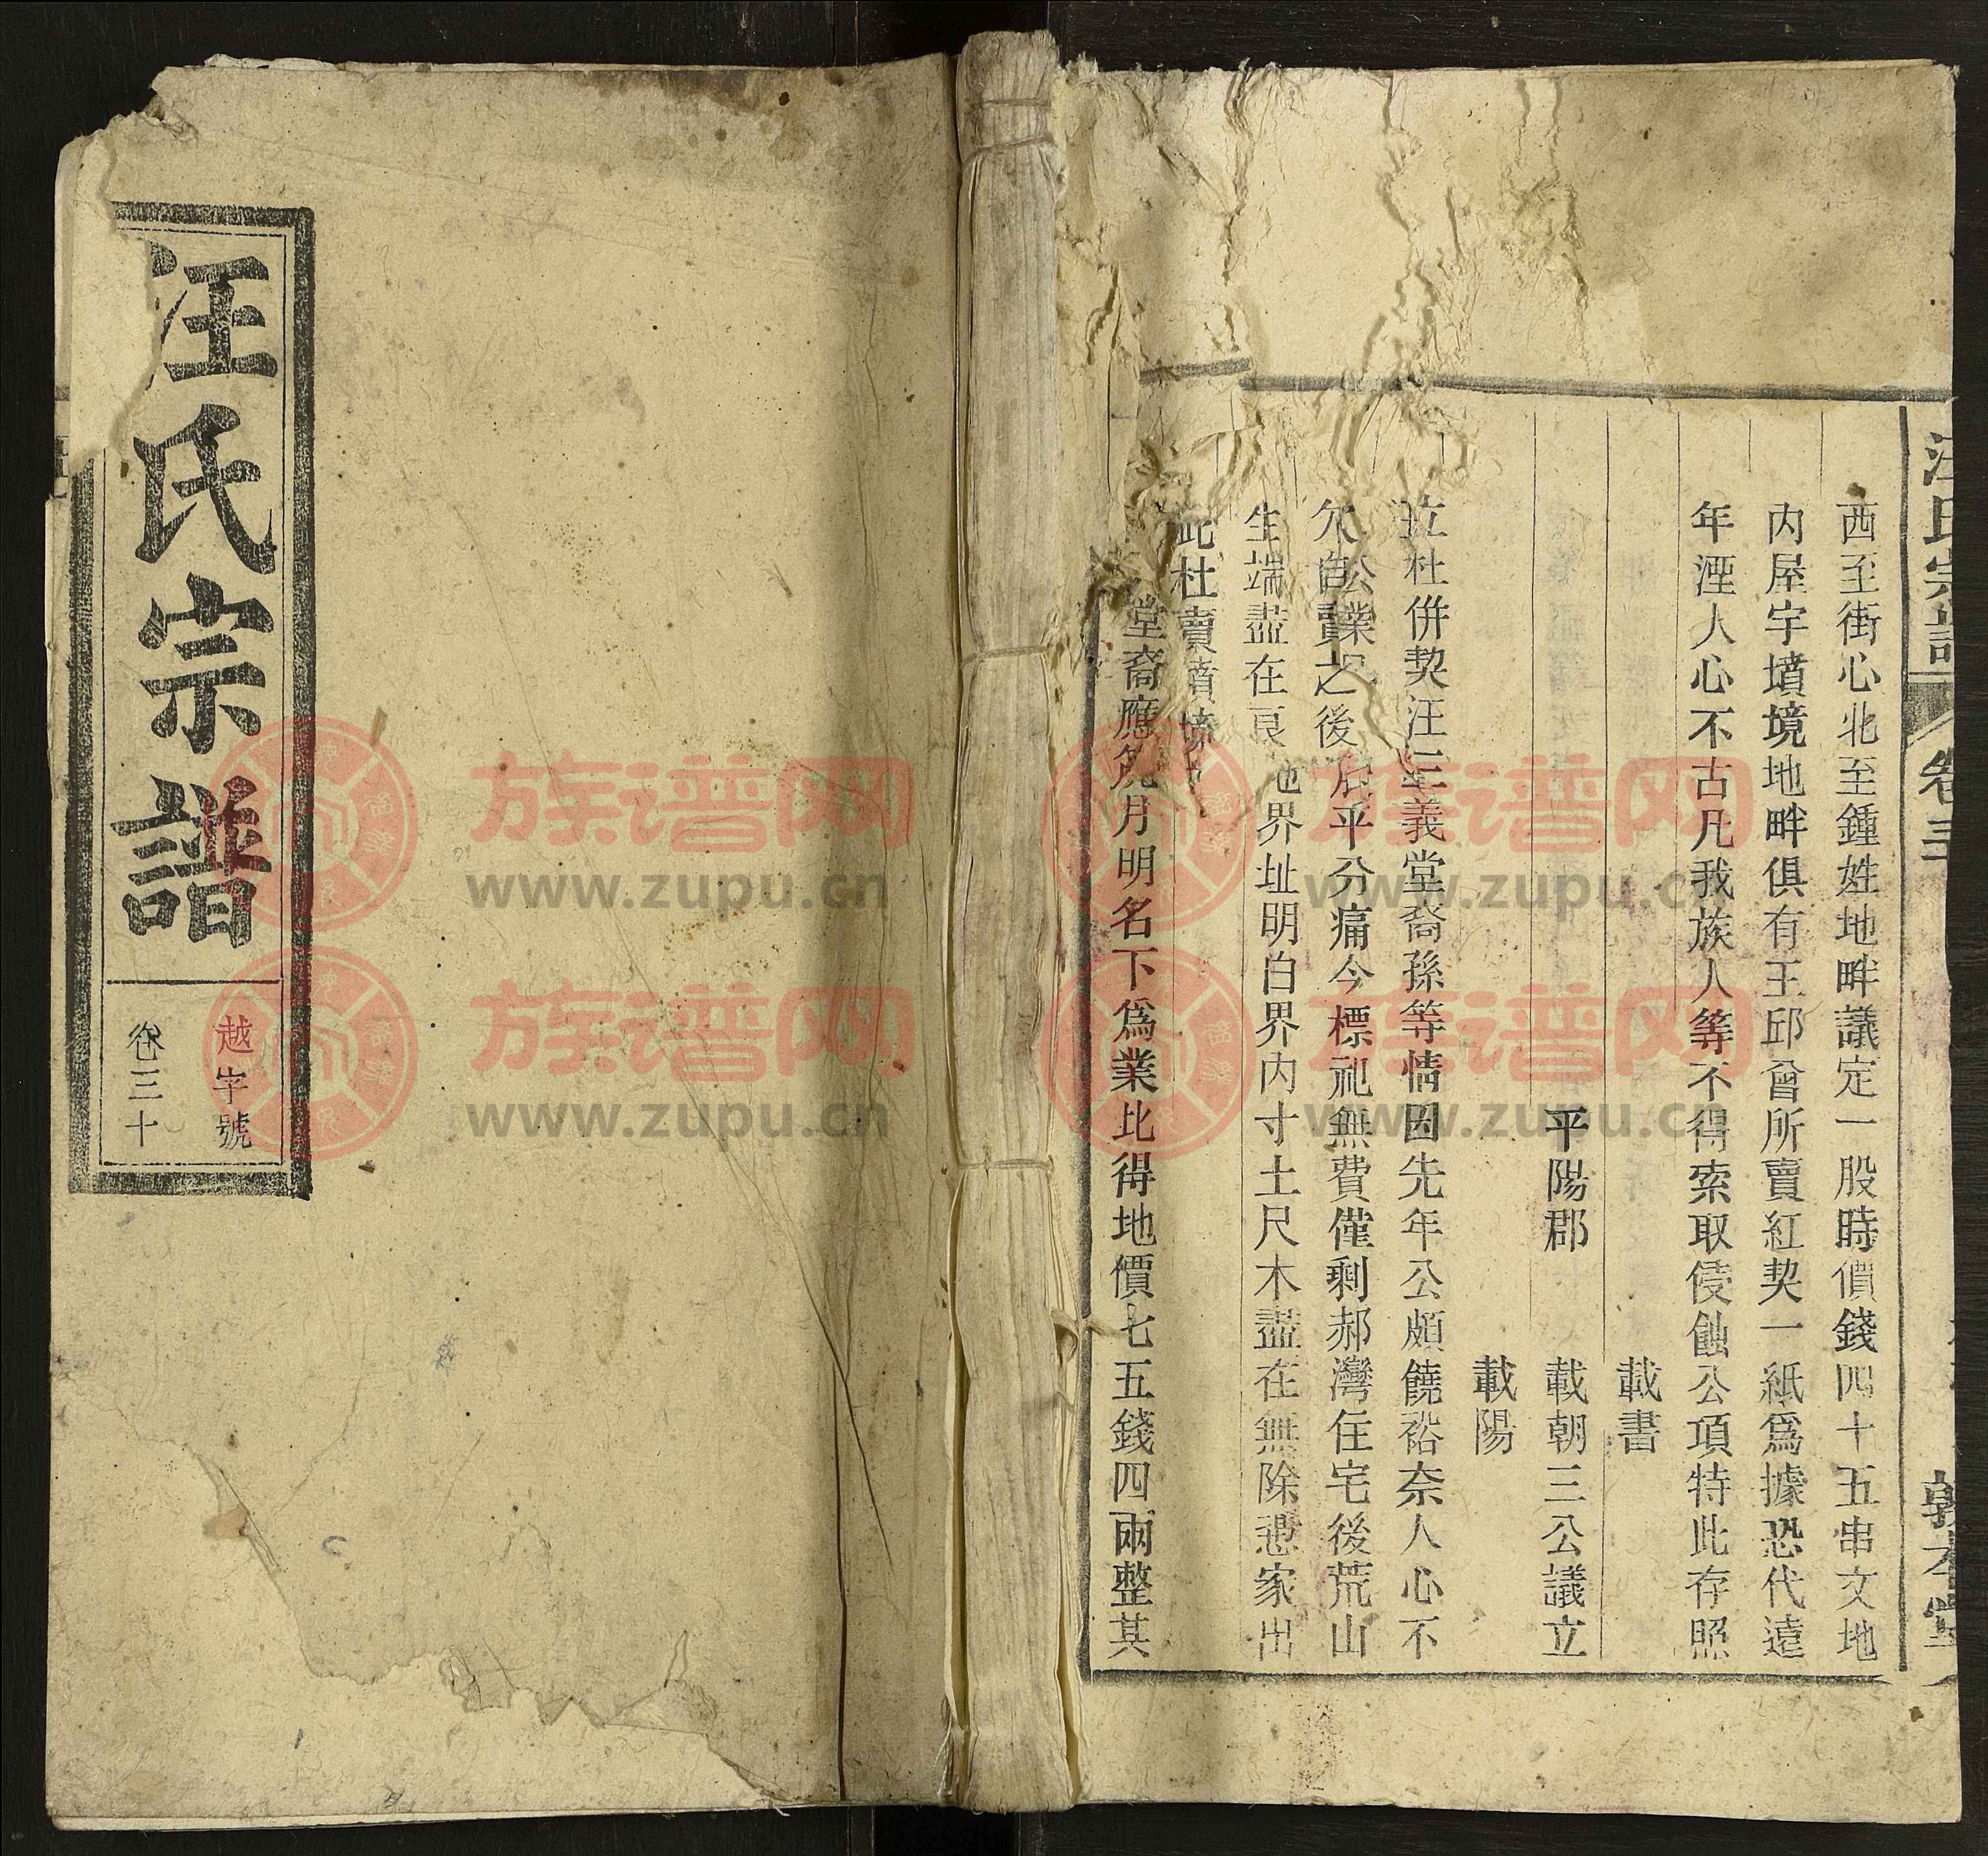 汪氏宗譜
卷三
敦本堂
西至街心北至鍾姓地畔議定一股時價錢四十五串文地
内屋宇墳境地畔俱有王邱會所賣紅契一紙爲據恐代遠
年湮人心不古凡我族人等不得索取侵蝕公項特此存照
載書
平陽郡 載朝三公議立
載陽
立杜併契汪三義堂裔孫等情因先年公頗饒裕奈人心不
後 平分痛今標祀無費僅剩郝灣住宅後荒山
生端盡在 界址明白界内寸土尺木盡在無除 家出
此杜賣墳
堂裔應 月明名下爲業比得地價七五錢四兩整其
汪氏宗譜
越字號
卷三十
族谱网
www.zupu.cn
族谱网
www.zupu.cn
族谱网
www.zupu.cn
族谱网
www.zupu.cn